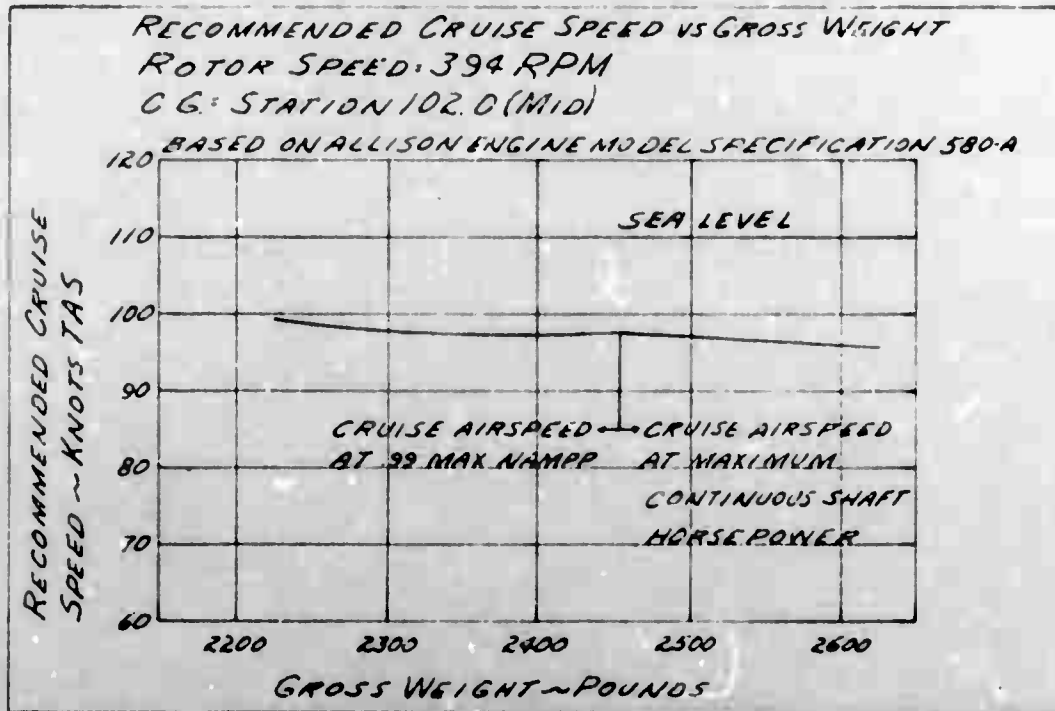 RECOMMENDED CRUISE SPEED VS GROSS WEIGHT
ROTOR SPEED: 394 RPM
C G.: STATION 102.0 (MID)
BASED ON ALLISON ENGINE MODEL SPECIFICATION 580-A
120
110
100
90
80
70
60
RECOMMENDED CRUISE
SPEED ~ KNOTS TAS
SEA LEVEL
CRUISE AIRSPEED
AT 99 MAX NAMPP
CRUISE AIRSPEED
AT MAXIMUM
CONTINUOUS SHAFT
HORSEPOWER
2200 2300 2400 2500 2600
GROSS WEIGHT ~ POUNDS